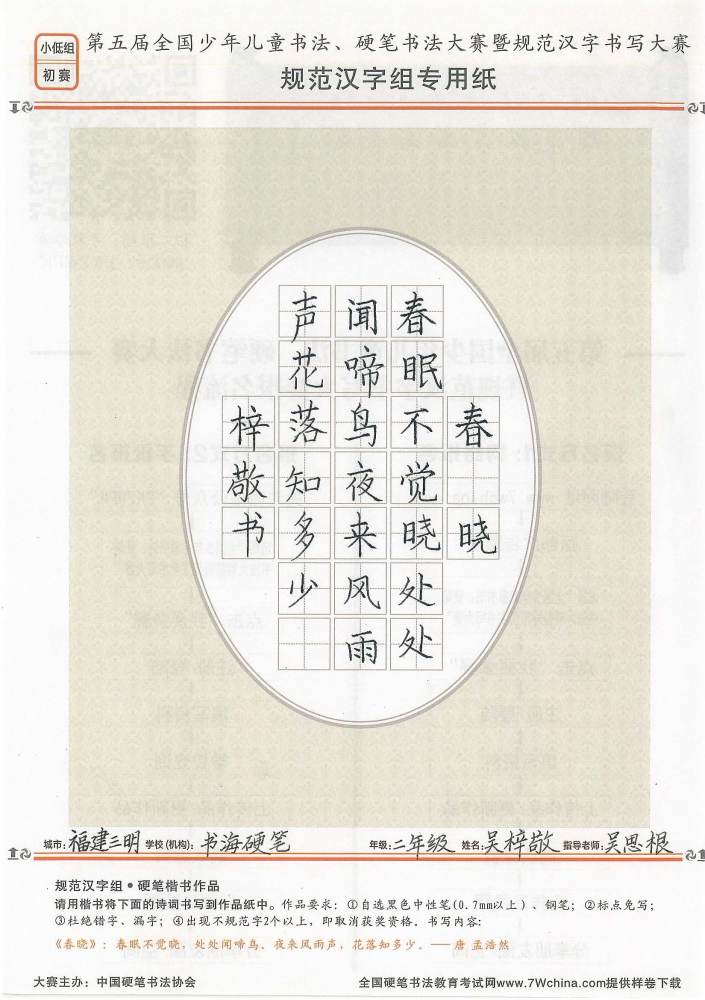 小低组
初赛
第五届全国少年儿童书法、硬笔书法大赛暨规范汉字书写大赛
规范汉字组专用纸
春晓
春眠不觉晓处处
闻啼鸟夜来风雨
声花落知多少
梓敬书
城市：福建三明 学校(机构)：书海硬笔 年级：二年级 姓名：吴梓敬 指导老师：吴思根
规范汉字组●硬笔楷书作品
请用楷书将下面的诗词书写到作品纸中。作品要求：①自选黑色中性笔(0.7mm以上)、钢笔；②标点免写；
③杜绝错字、漏字；④出现不规范字2个以上，即取消获奖资格。书写内容：
《春晓》：春眠不觉晓，处处闻啼鸟。夜来风雨声，花落知多少。——唐 孟浩然
大赛主办：中国硬笔书法协会
全国硬笔书法教育考试网www.7Wchina.com提供样卷下载